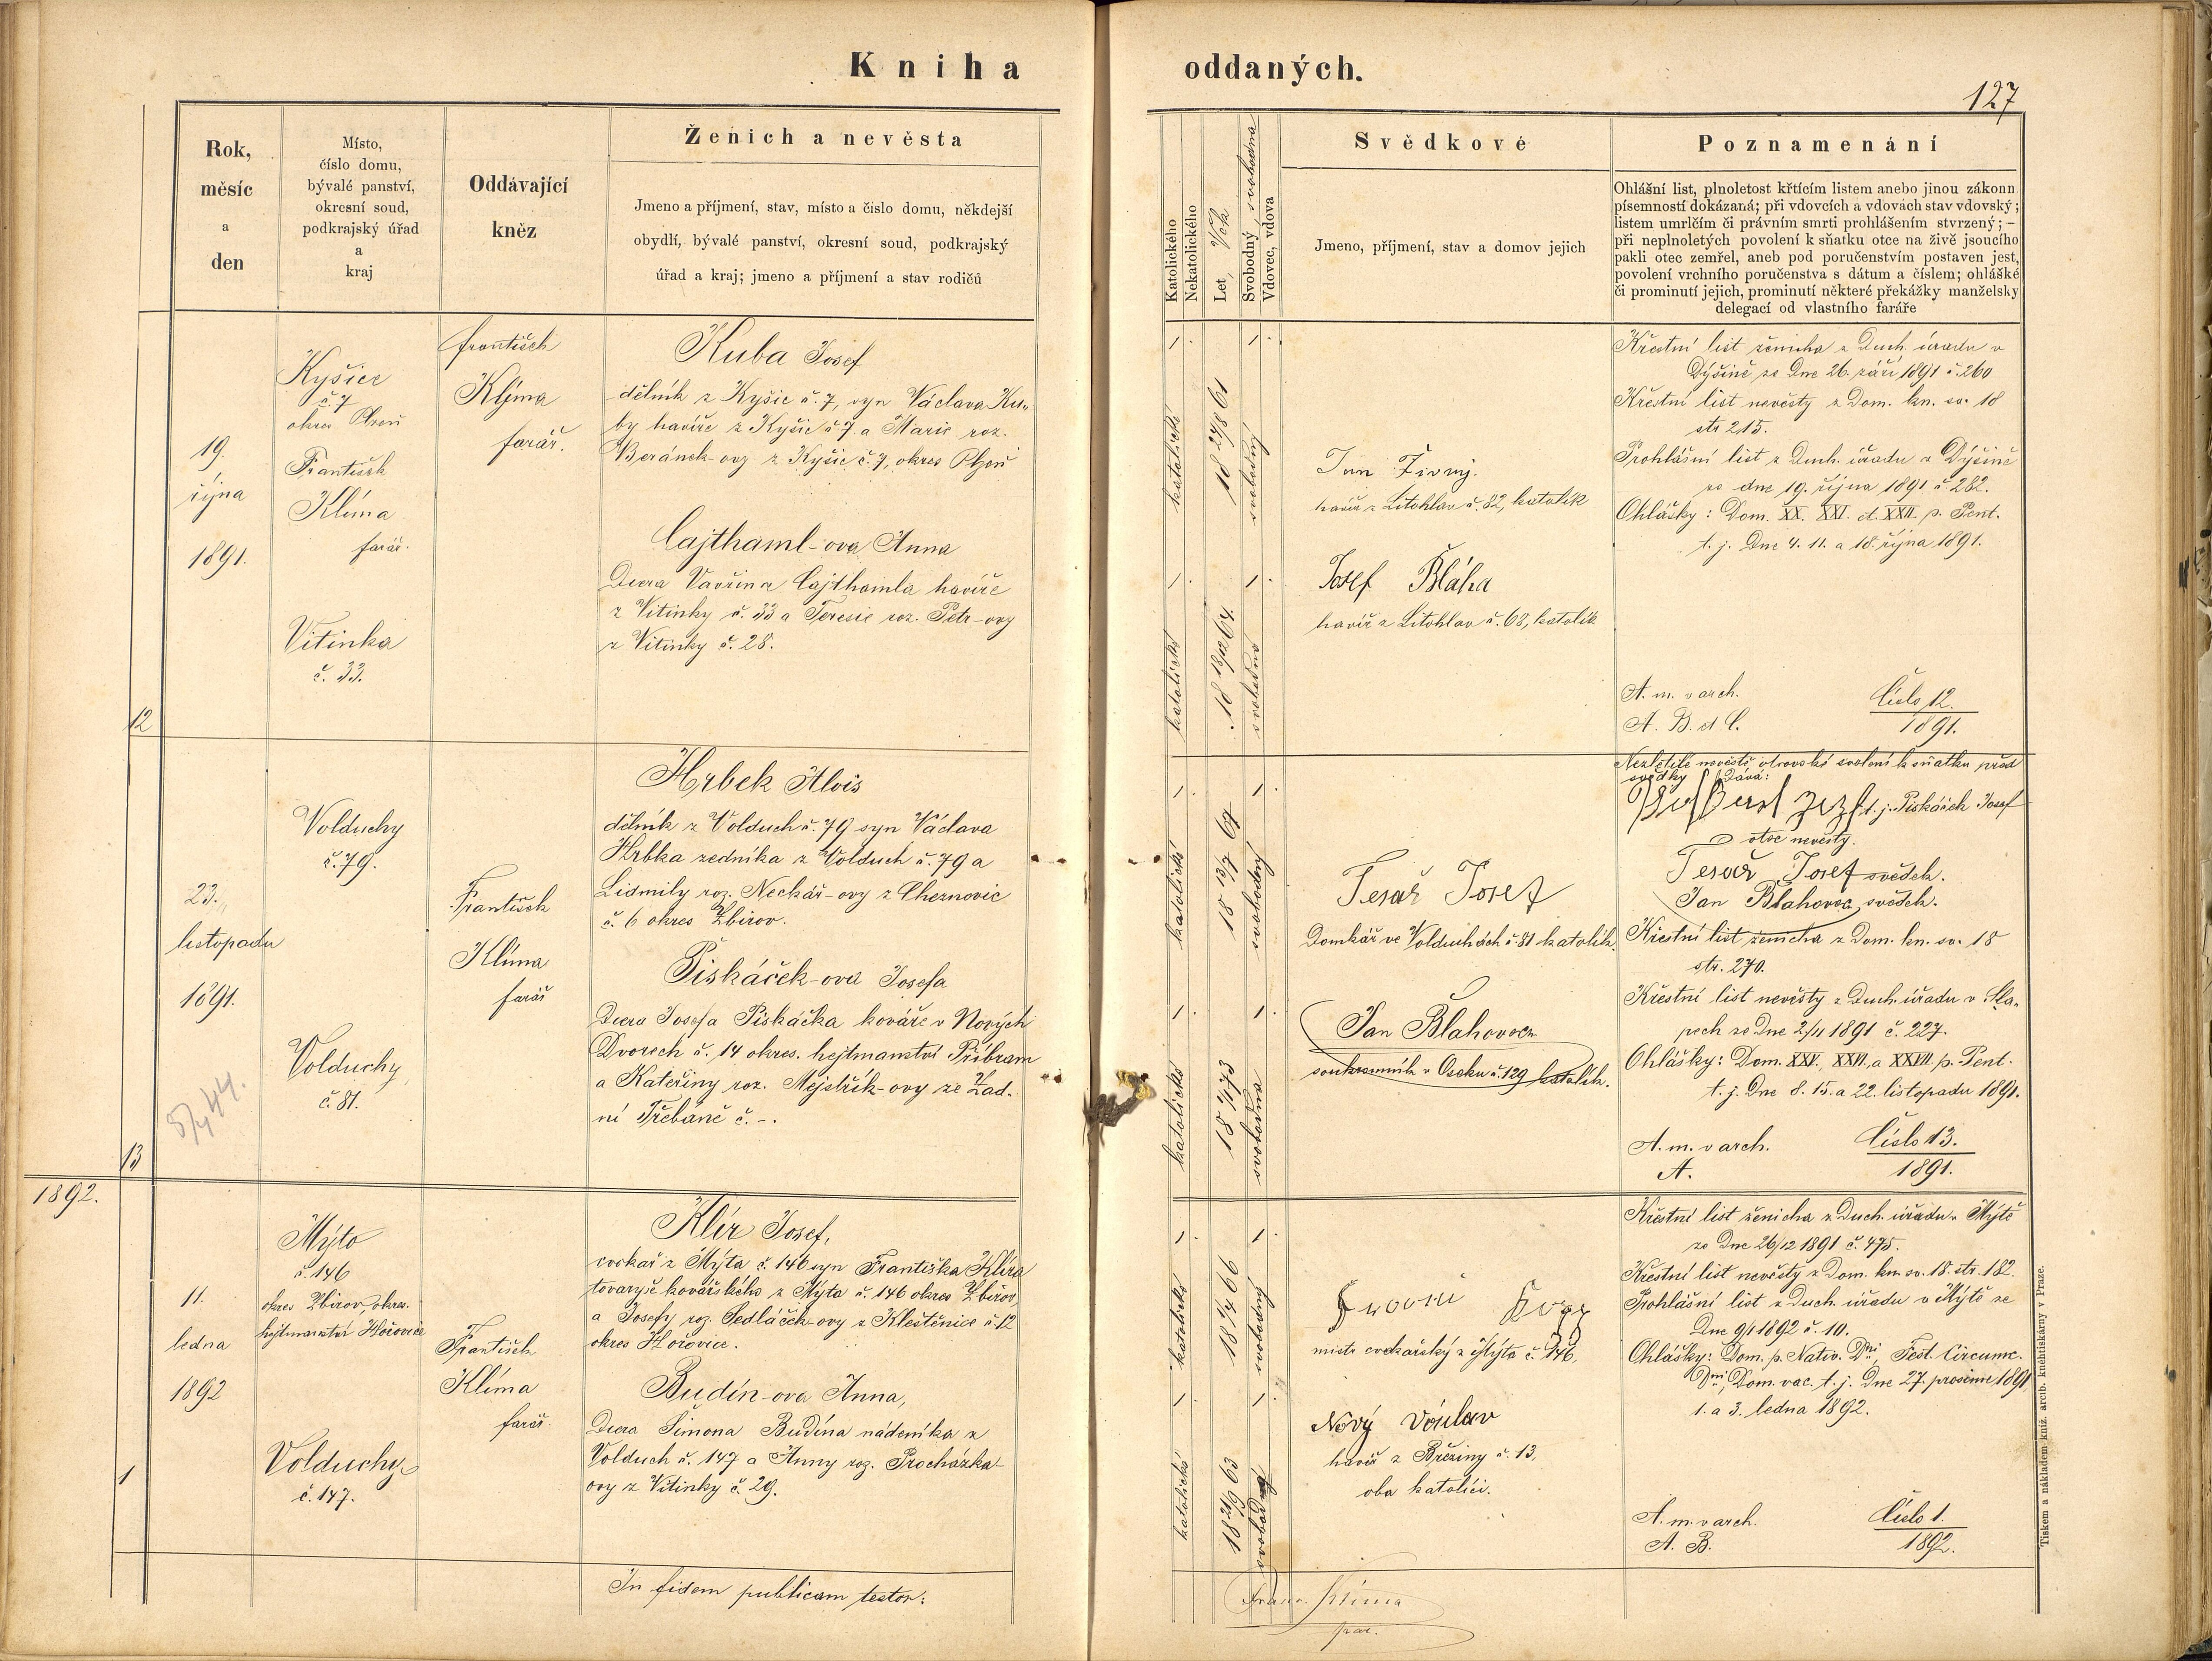 Kniha oddaných.
127
Rok,
měsíc
a
den
Místo,
číslo domu,
bývalé panství,
okresní soud,
podkrajský úřad
a
kraj
Oddávající
kněz
Ženich a nevěsta
Jmeno a příjmení, stav, místo a číslo domu, někdejší
obydlí, bývalé panství, okresní soud, podkrajský
úřad a kraj; jmeno a příjmení a stav rodičů
Katolického
Nekatolického
Let, Věk
Svobodný, svobodna
Vdovec, vdova
Svědkové
Jmeno, příjmení, stav a domov jejich
Poznamenání
Ohlášní list, plnoletost křtícím listem anebo jinou zákonn
písemností dokázaná; při vdovcích a vdovách stav vdovský;
listem umrlčím či právním smrti prohlášením stvrzený; –
při neplnoletých povolení k sňatku otce na živě jsoucího
pakli otec zemřel, aneb pod poručenstvím postaven jest,
povolení vrchního poručenstva s dátum a číslem; ohlášké
či prominutí jejich, prominutí některé překážky manželsky
delegací od vlastního faráře
12
19.
října
1891.
Kyšice
č. 7
okres Plzeň
František
Klíma
farář.
Vitinka
č. 33.
František
Klíma
farář.
Kuba Josef
dělník z Kyšic č. 7, syn Václava Ku„
by havíře z Kyšic č. 7 a Marie roz.
Beránek-ovy z Kyšic č. 7, okres Plzeň
Cajthaml-ova Anna
Dcera Vavřina Cajthamla havíře
z Vitinky č. 33 a Teresie roz. Petr-ovy
z Vitinky č. 28.
1.
katolické
18 24/8 61
svobodný
1.
1.
katolické
18 13/12 64.
svobodna
1.
Jan Živný.
havíř z Litohlav č. 82, katolík
Josef Bláha
havíř z Litohlav č. 63, katolík
Křestní list ženicha z Duch. úřadu v
Dýšině ze Dne 26. září 1891 č. 260
Křestní list nevěsty z Dom. kn. sv. 18
str 215.
Prohlášní list z Duch. úřadu v Dýšině
ze dne 19. října 1891 č. 282.
Ohlášky: Dom. XX. XXI. et. XXII. p. Pent.
t. j. Dne 4. 11. a 18. října 1891.
A. m. v arch.
A. B. et C.
Číslo 12.
1891.
13
23.
listopadu
1891.
Volduchy
č. 79.
Volduchy
č. 81.
František
Klíma
farář
Hrbek Alois
dělník z Volduch č. 79 syn Václava
Hrbka zedníka z Volduch č. 79 a
Lidmily roz. Neckář-ovy z Cheznovic
č. 6 okres Zbirov.
Piskáček-ova Josefa
Dcera Josefa Piskáčka kováře v Nových
Dvorech č. 14 okres. hejtmanství Příbram
a Kateřiny roz. Mejstřík-ovy ze Zad-
ní Třebáně č. –.
1.
katolické
18 13/7 67
svobodný
1.
1.
katolické
svobodna
1.
Tesař Josef
Domkář ve Volduchách č. 81 katolík.
Jan Blahovec
soukromník v Oseku č. 129 katolík.
Nezletilé nevěstě otcovské svolení k sňatku před
svědky Dává:
t. j. Piskáček Josef
otec nevěsty.
Tesař Josef svědek.
Jan Blahovec svědek.
Křestní list ženicha z Dom. kn. sv. 18
str. 270.
Křestní list nevěsty z Duch. úřadu v Sla„
pech ze Dne 2/11 1891 č. 227.
Ohlášky: Dom. XXV., XXVI. a XXVII. p. Pent.
t. j. Dne 8. 15. a 22. listopadu 1891.
A. m. v arch.
A.
Číslo 13.
1891.
1892.
1
11.
ledna
1892
Mýto
č. 146
okres Zbirov, okres.
hejtmanství Hořovice
Volduchy
č. 147.
František
Klíma
farář.
Klír Josef,
cvokař z Mýta č. 146 syn Františka Klíra
tovaryše kovářského z Mýta č. 146 okres Zbirov,
a Josefy roz. Sedláček-ovy z Kleštěnice č. 12
okres Hořovice.
Budín-ova Anna,
Dcera Šimona Budína nádeníka z
Volduch č. 147 a Anny roz. Procházka-
ovy z Vitinky č. 29.
1.
katolické
svobodný
1.
1.
katolické
svobodna
1.
mistr cvokařský z Mýta č. 146,
Nový Václav
havíř z Březiny č. 13,
oba katolíci.
Křestní list ženicha z Duch. úřadu v Mýtě
ze Dne 26/12 1891 č. 475.
Křestní list nevěsty z Dom. kn. sv. 18. str. 182.
Prohlášní list z Duch. úřadu v Mýtě ze
Dne 9/1 1892 č. 10.
Ohlášky: Dom. p. Nativ. Dni, Fest. Circumc.
Dni, Dom. vac. t. j. Dne 27. prosince 1891
1. a 3. ledna 1892.
A. m. v arch.
A. B.
Číslo 1.
1892.
In fidem publicam testor:
Franc. Klíma
par.
Tiskem a nákladem kníž. arcib. knehtiskárny v Praze.